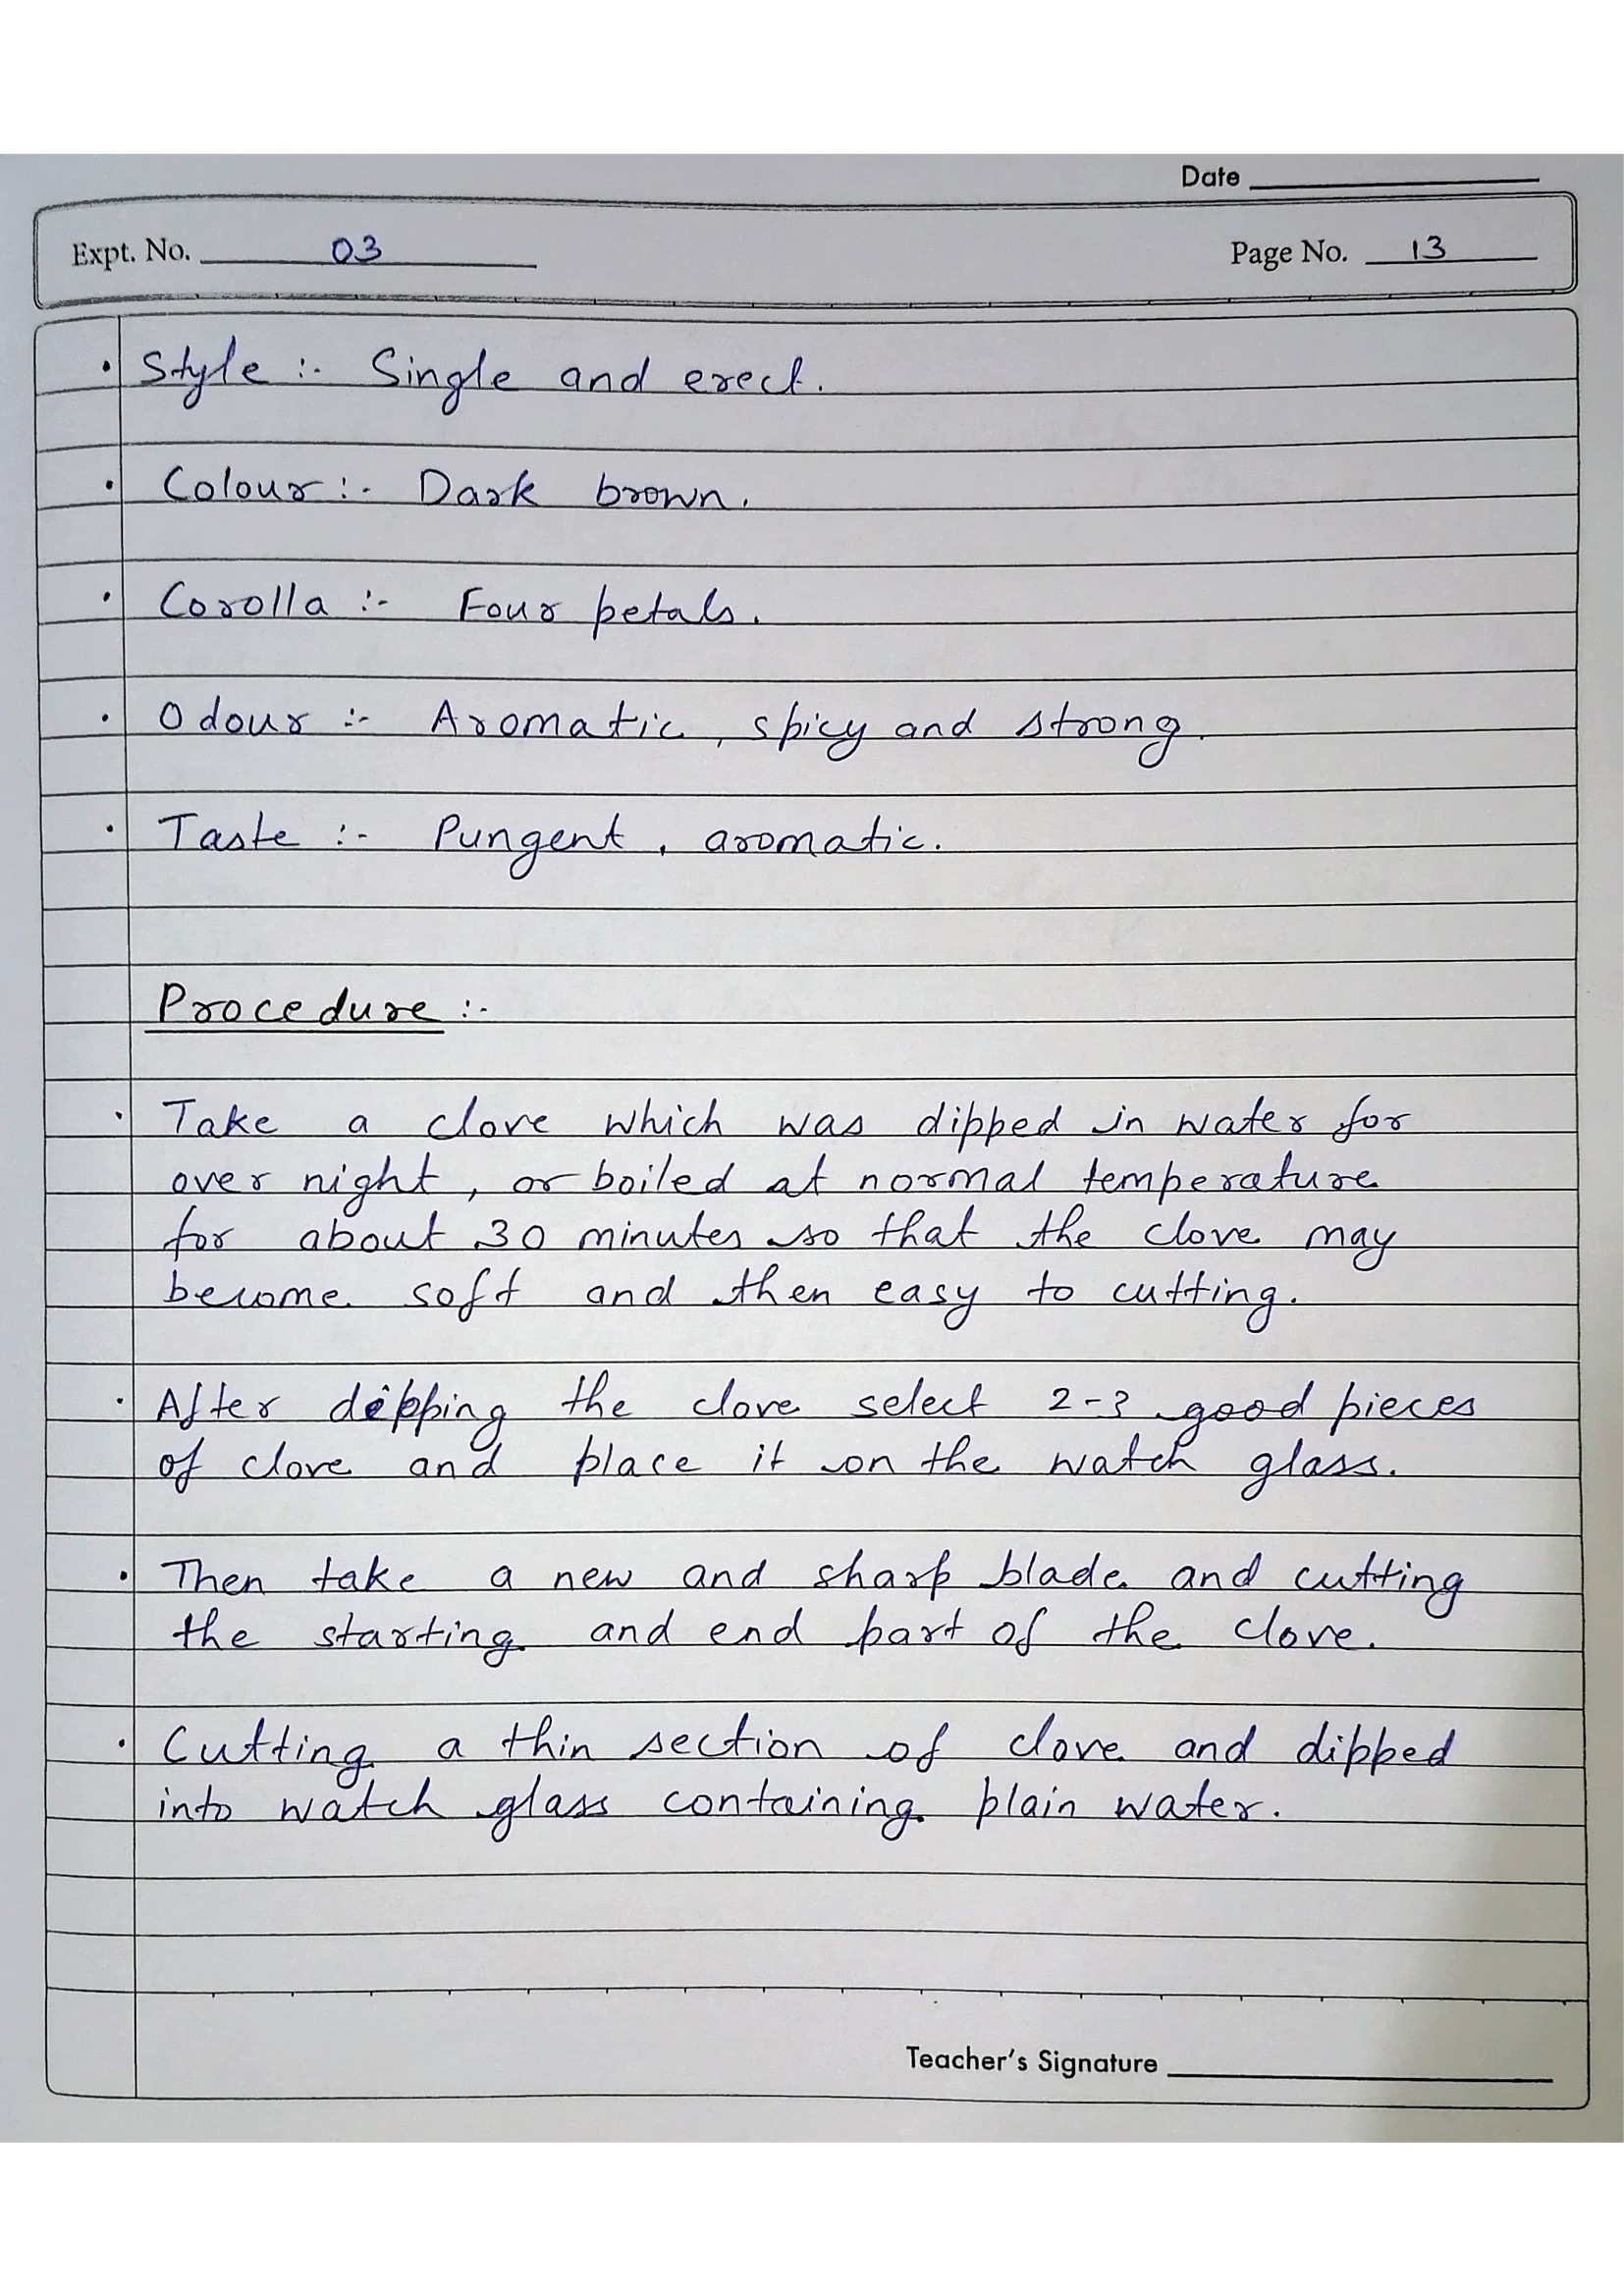 Date
Expt. No. 03
Page No. 13
• Style :- Single and erect.
• Colour :- Dark brown.
• Corolla :- Four petals.
• Odour :- Aromatic, spicy and strong.
• Taste :- Pungent, aromatic.
Procedure :-
• Take a clove which was dipped in water for
over night, or boiled at normal temperature
for about 30 minutes so that the clove may
become soft and then easy to cutting.
• After dipping the clove select 2-3 good pieces
of clove and place it on the watch glass.
• Then take a new and sharp blade and cutting
the starting and end part of the clove.
• Cutting a thin section of clove and dipped
into watch glass containing plain water.
Teacher's Signature